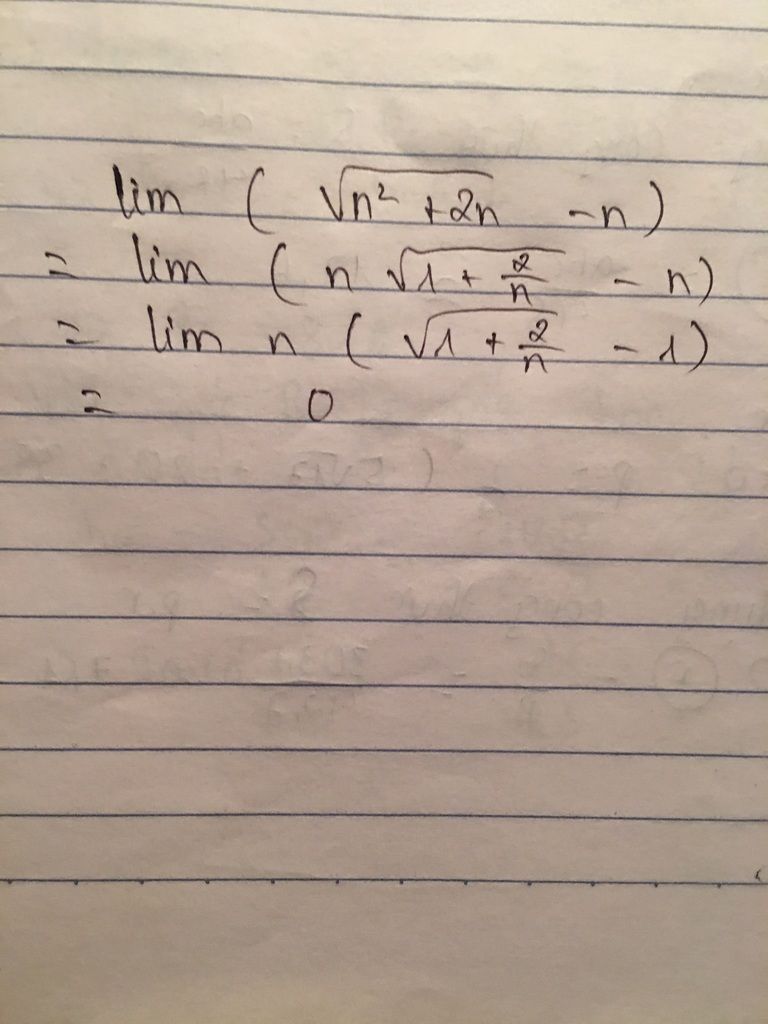 lim ( √(n² + 2n) - n)
= lim ( n √(1 + 2/n) - n)
= lim n ( √(1 + 2/n) - 1)
= 0